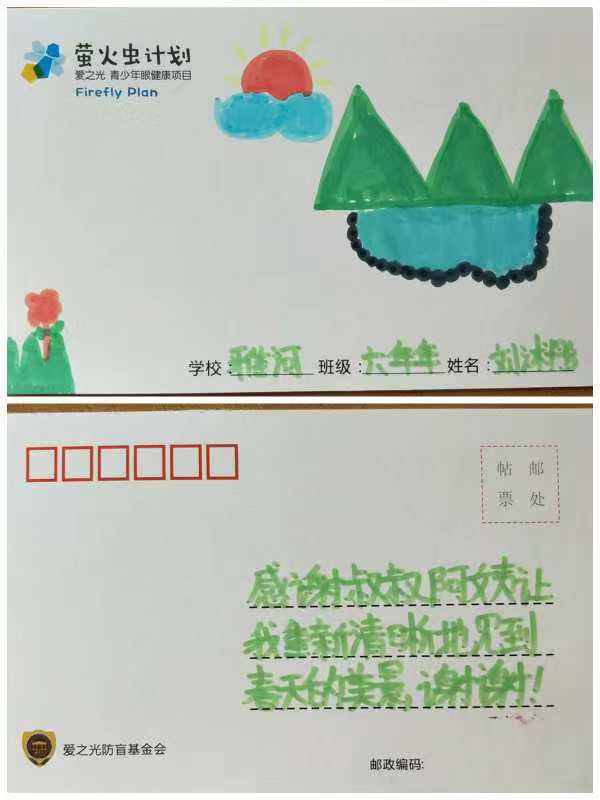 萤火虫计划
爱之光 青少年眼健康项目
Firefly Plan
学校: 雅河 班级: 六年 姓名: 刘沐
帖 邮
票 处
感谢叔叔,阿姨让
我重新清晰地见到
春天的美景,谢谢!
爱之光防盲基金会
邮政编码: